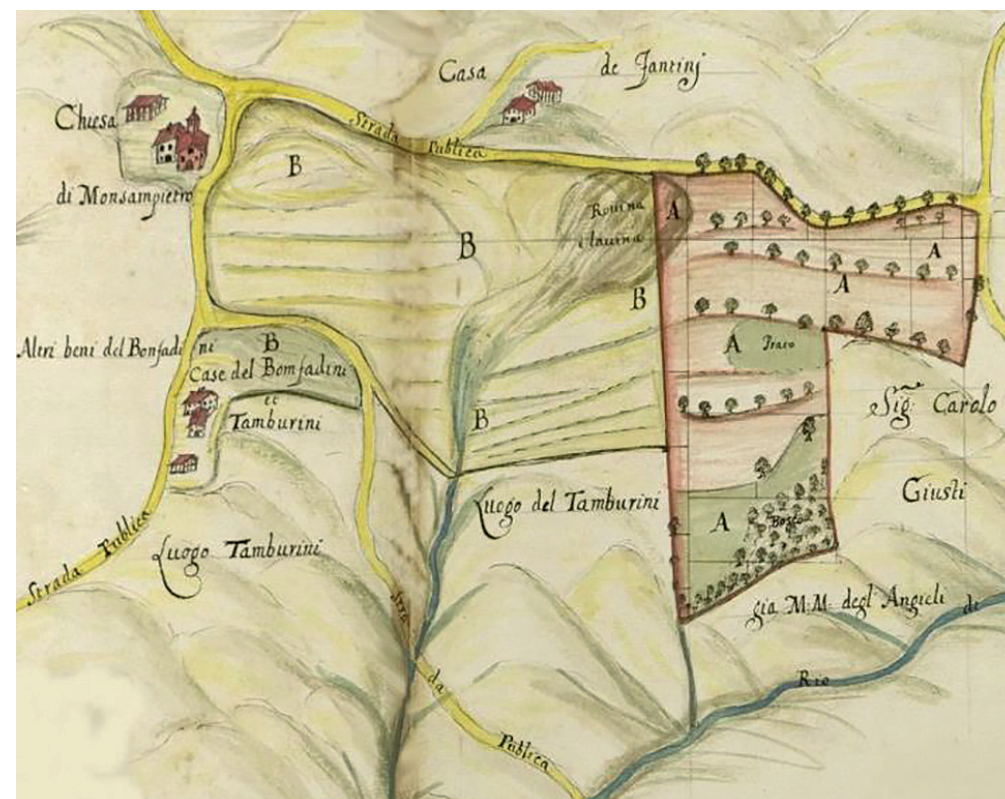 Casa de Fantinj
Chiesa
di Monsampietro
Strada Publica
B
Rouina
A
B
B
A
A
Altri beni del Bonfadini
B
Case del Bomfadini
et
Tamburini
A Prato
Sig.re Carolo
Giusti
B
Luogo del Tamburini
A
Bosco
Strada Publica
Luogo Tamburini
Strada Publica
gia M.M. degl Angieli di
Rio